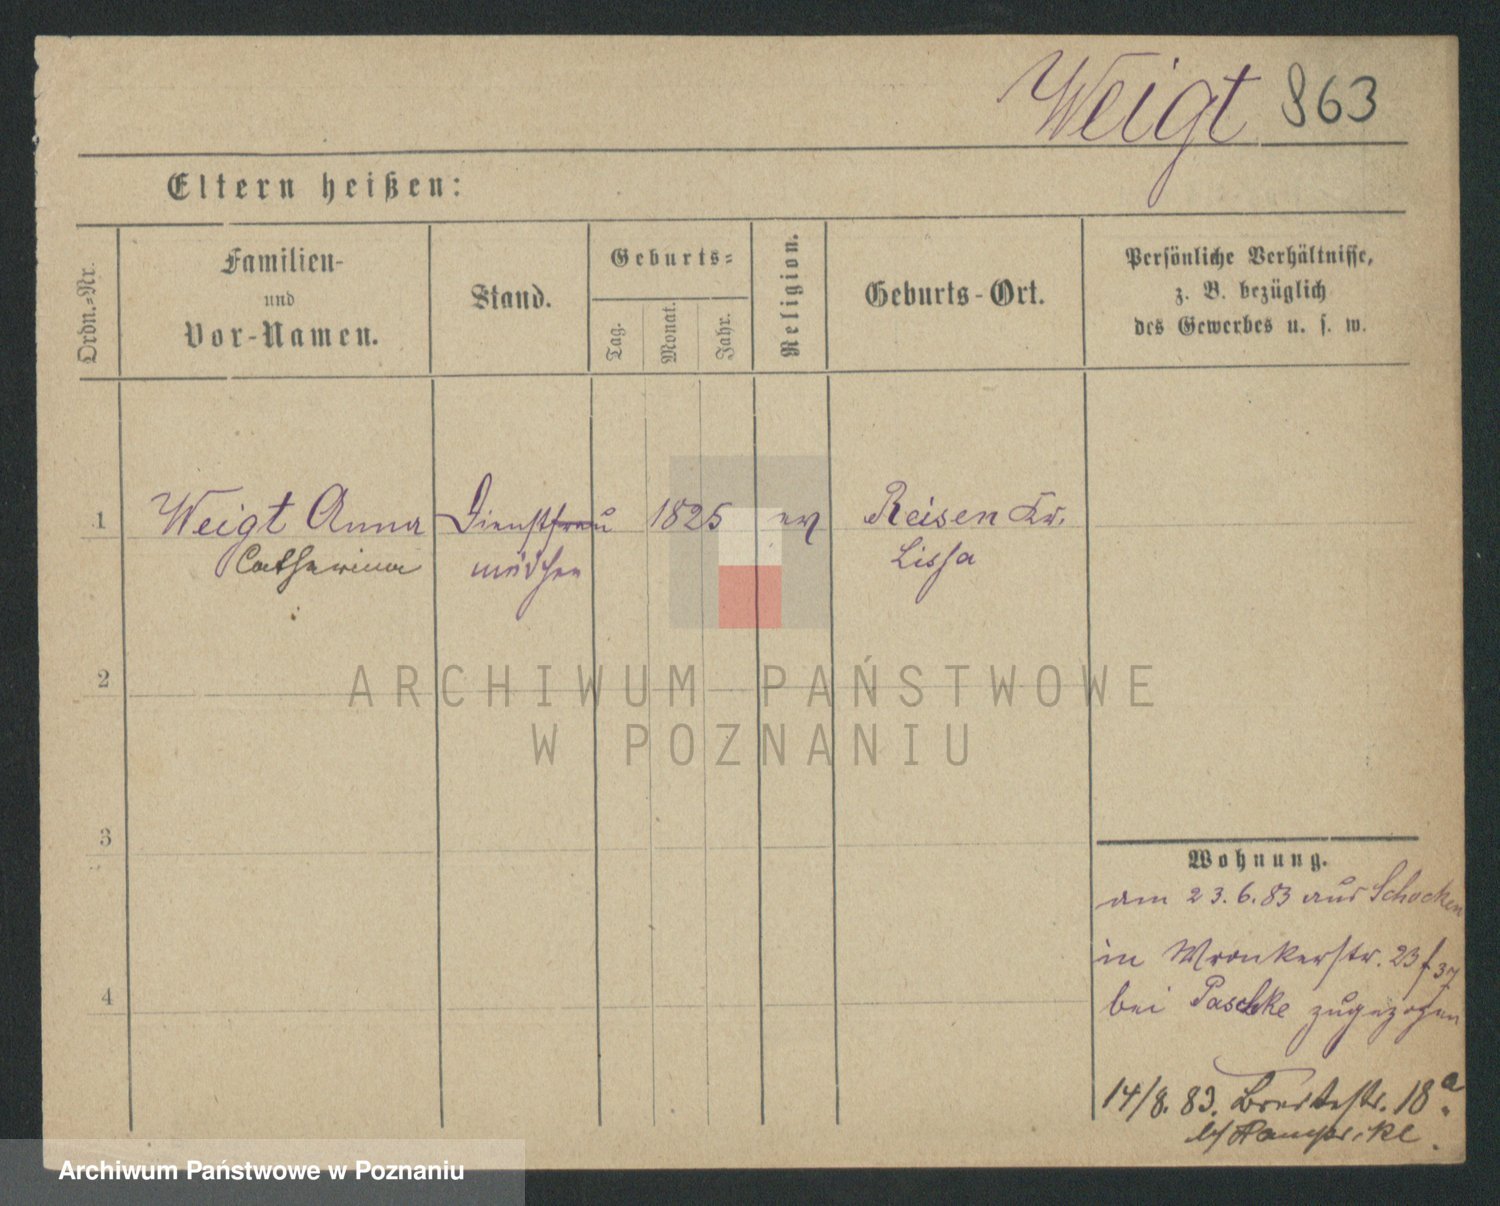 Weigt 863
Eltern heißen:
Ordn.-Nr.
Familien-
und
Vor-Namen.
Stand.
Geburts-
Tag.
Monat.
Jahr.
Religion.
Geburts-Ort.
Persönliche Verhältnisse,
z. B. bezüglich
des Gewerbes u. s. w.
1 Weigt Anna Dienstfrau 1825 ev Reisen Kr.
Catharina mädchen Lissa
2
ARCHIWUM PAŃSTWOWE
W POZNANIU
3
4
Wohnung.
am 23.6.83 aus Schocken
in Wronkerstr. 23
bei Paschke zugezogen
14/8. 83. Breitestr. 18a
Archiwum Państwowe w Poznaniu